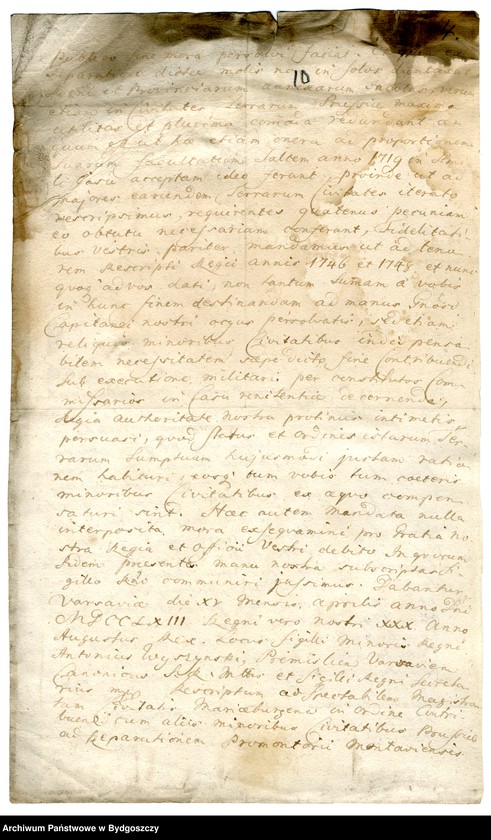 4.
publico sine mora persolvi facias.
10
Reparatione dictae molis non in solos
Regni et Provinciarum annexarum verum
etiam in Civitates Terrarum Prussiae maxima
utilitas et plurima comoda redundant ad
quam ut hoc etiam onera ac proportionem
suarum facultatum saltem anno 1719 in
li Casu acceptam ideo ferunt, proinde ut ad
majores earundem Terrarum Civitates iterato
rescripsimus, requirentes quatenus pecuniam
eo obtutu necessariam conferant, fidelitati
bus vestris pariter mandamus ut ad teno
rem Rescripti Regii annis 1746 et 1748 et nunc
quoq ad vos dati, non tantum sumam a vobis
in hunc finem destinandam ad manus Gnosi
Capitanei nostri ocyus persolvatis, sed etiam
reliquis minoribus Civitatibus indispensa
bilem necessitatem saepe dicto fine contribuendi
sub executione militari per constitutos Com
missarios in Casu renitentiae decernenda,
Regia authoritate nostra protinus intimetis
persuasi, quod Status et Ordines istarum Ter
rarum sumptuum hujusmodi justam ratio
nem habituri, eosq tum vobis tum caeteris
minoribus Civitatibus ex aequo compen
saturi sint. Haec autem mandata nulla
interposita mora exsequamini pro Gratia No
stra Regia et officii Vestri debito. In quorum
fidem praesentes manu nostra subscriptas Si
gillo Regni communiri jussimus. Dabantur
Varsaviae die XV Mensis Aprilis anno Dni
MDCCLXIII Regni vero nostri XXX Anno
Augustus Rex. Locus Sigilli Minoris Regni
Antonius Wyszynski, Premislien Varsavien
Canonicus S.R. Mttis et Sigilli Regni Secreta
rius mpp Rescriptum ad Spectabilem Magistra
tum Civitatis Marieburgensis in Ordine Contri
buendi cum aliis minoribus Civitatibus Prussiae
ad Reparationem Promontorii Montaviensis.
Archiwum Państwowe w Bydgoszczy